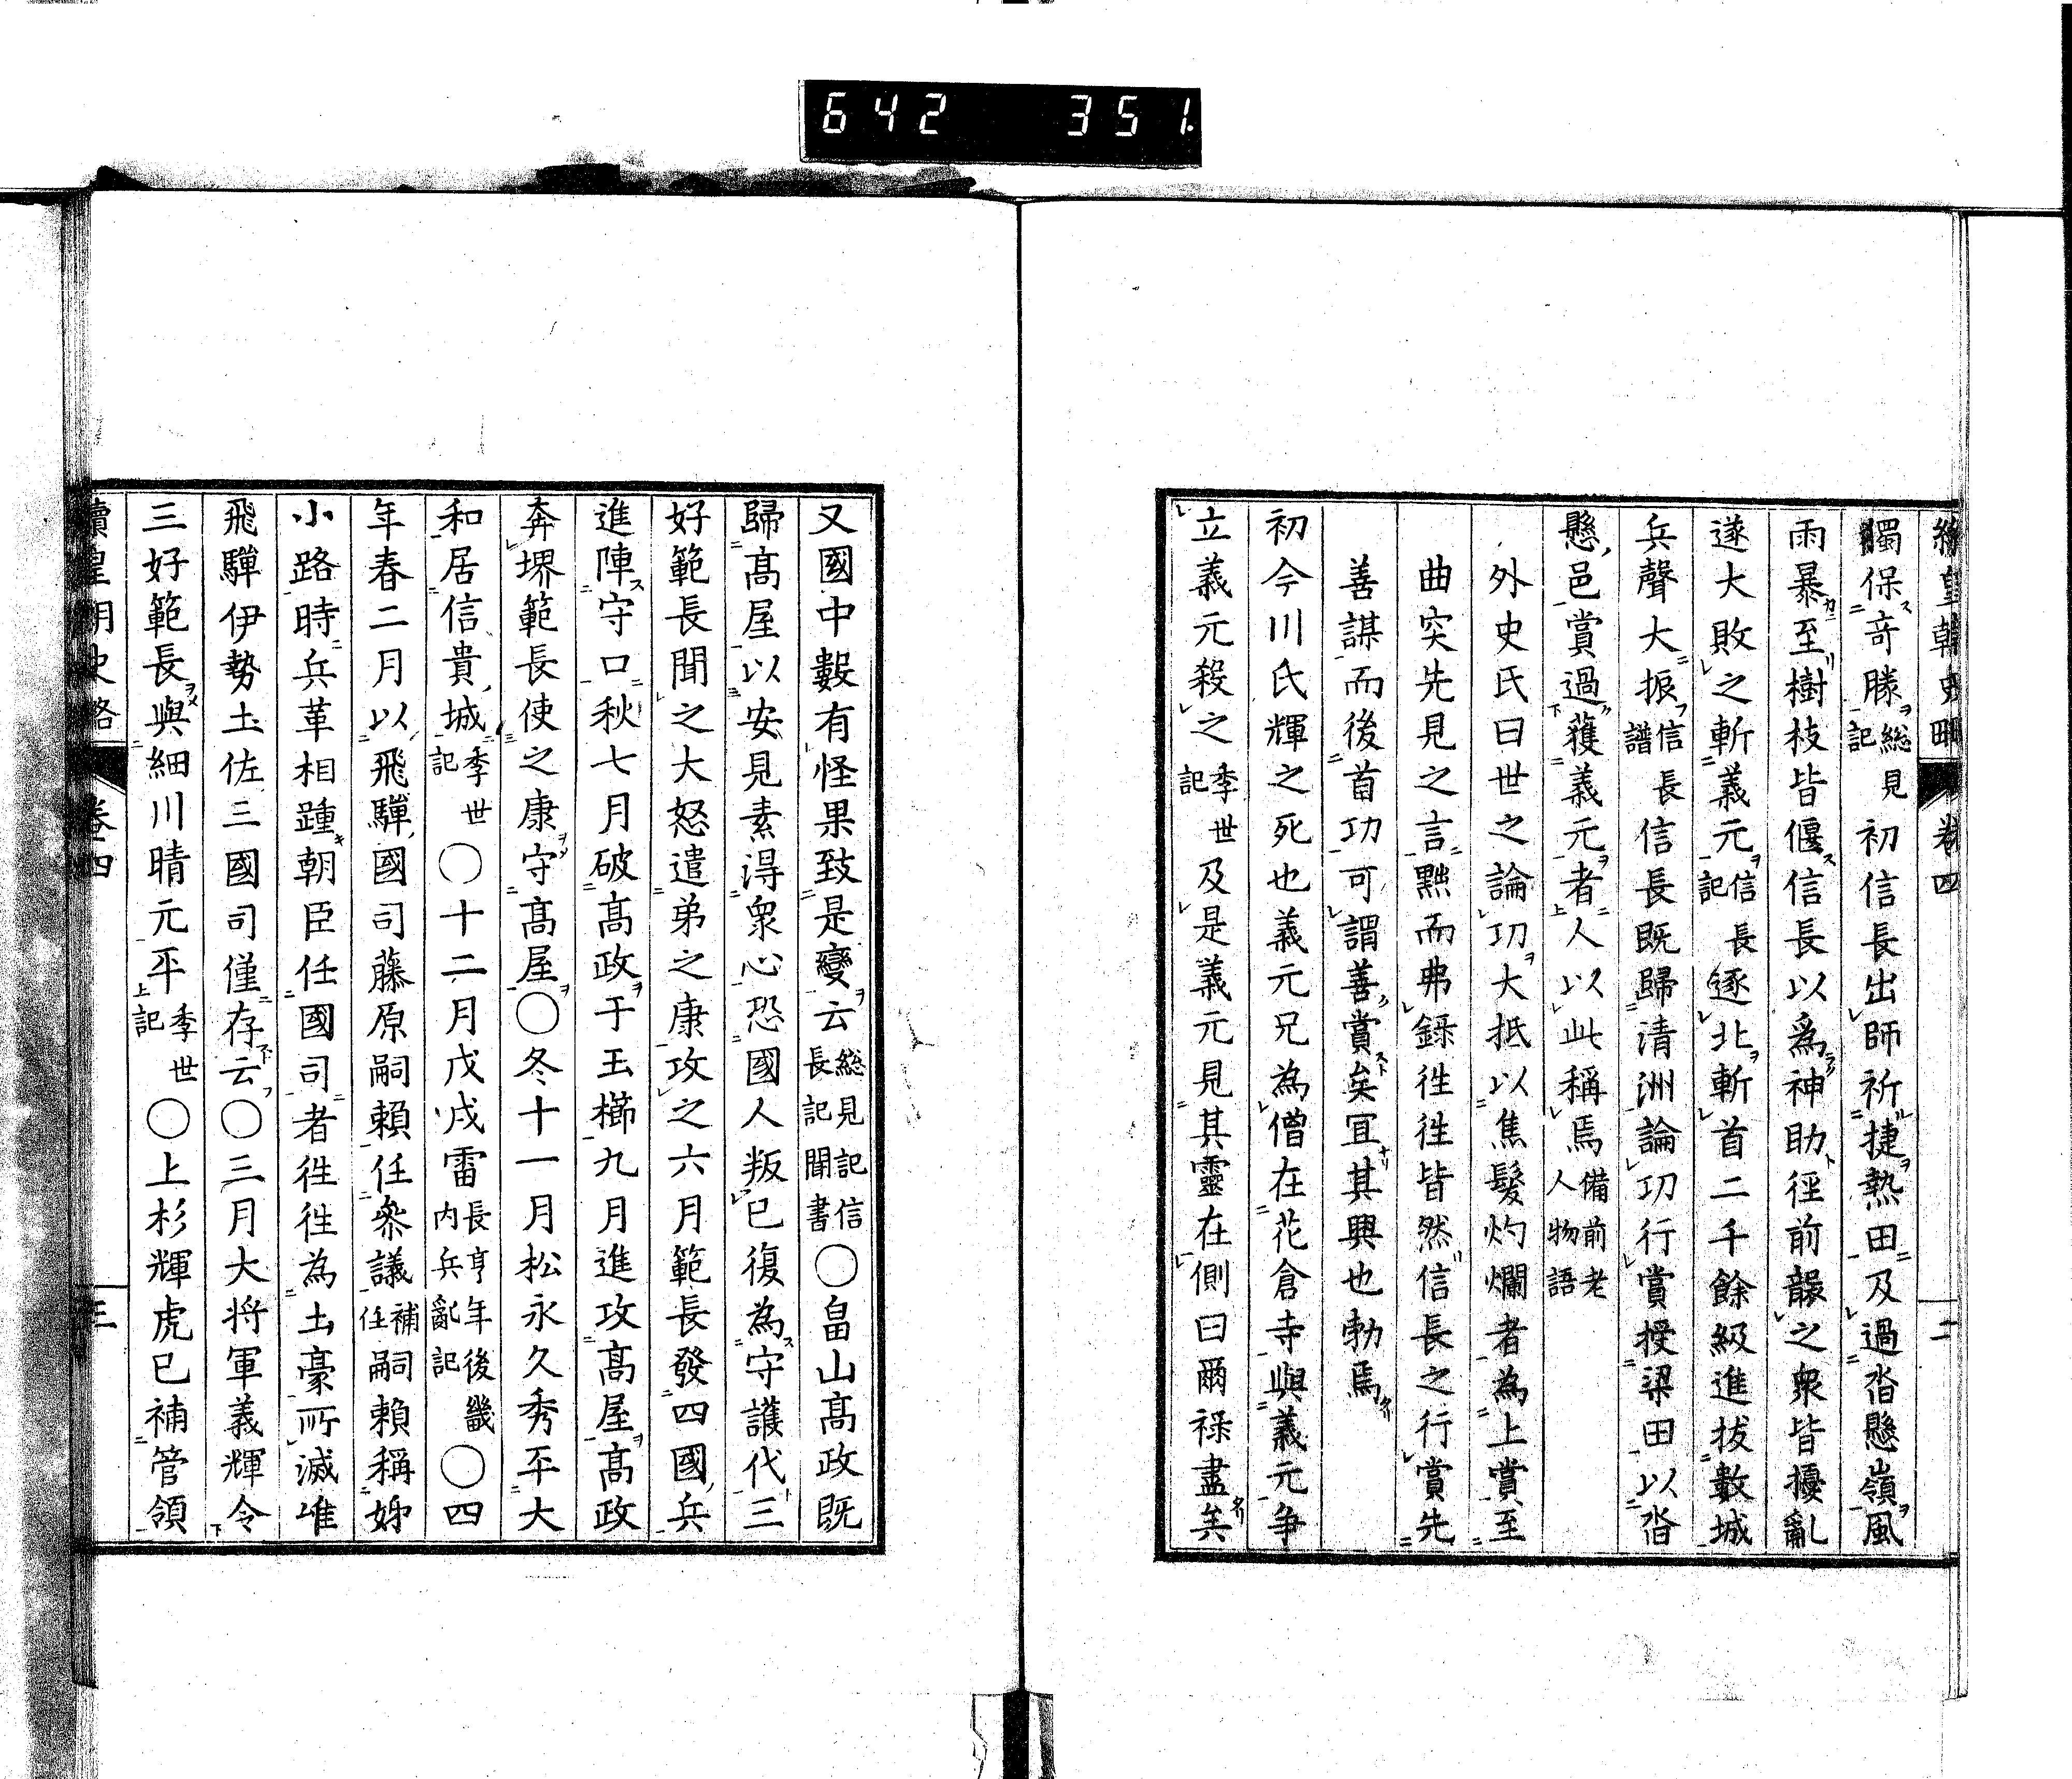 642 351.
續皇朝史略 卷四 二
獨保奇勝総見記初信長出師祈捷熱田及過沓懸嶺風
雨暴至樹枝皆偃信長以爲神助徑前襲之衆皆擾亂
遂大敗之斬義元信長記逐北斬首二千餘級進拔數城
兵聲大振信長譜信長既歸清洲論功行賞授梁田以沓
懸邑賞過獲義元者人以此稱焉備前老人物語
外史氏曰世之論功大抵以焦髮灼爛者為上賞至
曲突先見之言黜而弗錄徃徃皆然信長之行賞先
善謀而後首功可謂善賞矣宜其興也勃焉
初今川氏輝之死也義元兄為僧在花倉寺與義元争
立義元殺之季世記及是義元見其靈在側曰爾祿盡矣
又國中數有怪果致是變云総見記信長記聞書〇畠山髙政既
歸髙屋以安見素得衆心恐國人叛已復為守護代三
好範長聞之大怒遣弟之康攻之六月範長發四國兵
進陣守口秋七月破髙政于玉櫛九月進攻髙屋髙政
奔堺範長使之康守髙屋〇冬十一月松永久秀平大
和居信貴城季世記〇十二月戊戌雷長亨年後畿内兵亂記〇四
年春二月以飛驒國司藤原嗣賴任參議補任嗣賴稱姊
小路時兵革相踵朝臣任國司者徃徃為土豪所滅唯
飛驒伊勢土佐三國司僅存云〇三月大将軍義輝令
三好範長與細川晴元平季世記〇上杉輝虎已補管領
續皇朝史略 卷四 三